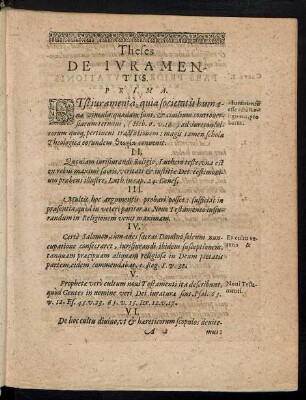 Theses
DE IVRAMEN-
TIS.
PRIMA.
ETsi iuramenta, quia societatis huma-
næ vincula quædam sunt, & civilium contro-
siarum termini, Heb. 6. v. 16. ad
torum quoq; pertinent tractationem: magis tamen Schola
Theologica eorundem convenit.
II.
Quoniam iurisiurandi Religio, Luthero teste, una est
ex rebus maximis veritati & iustitiæ Dei testimoni-
um præbens illustre, Luth. in cap. 24. Genes.
III.
Multis hoc argumentis probari posset: sufficiat in
præsentia, quod in veteri pariter ac Novo Testamento iusiu-
randum in Religionem venit maximam.
IV.
Certè Salomon, cum ædes sacras Domino solenni nun-
cupatione consecraret, iurisiurandi ibidem susceptionem,
tanquam præcipuam aliquam religiosæ in Deum pietatis
partem, eidem commendabat, 1. Reg. 8. v. 31.
V.
Prophetæ verò cultum novi Testamenti ita describunt,
quòd Gentes in nomine veri Dei iuraturæ sint. Psal. 63.
v. 12. Es. 45. v. 23. 65. v. 15. Ier. 12. v. 17.
VI.
De hoc cultu divino, ut & hæreticorum scopulos devite-
A 2
mus:
Ex cultu ve-
teris &
Novi Testa-
menti.